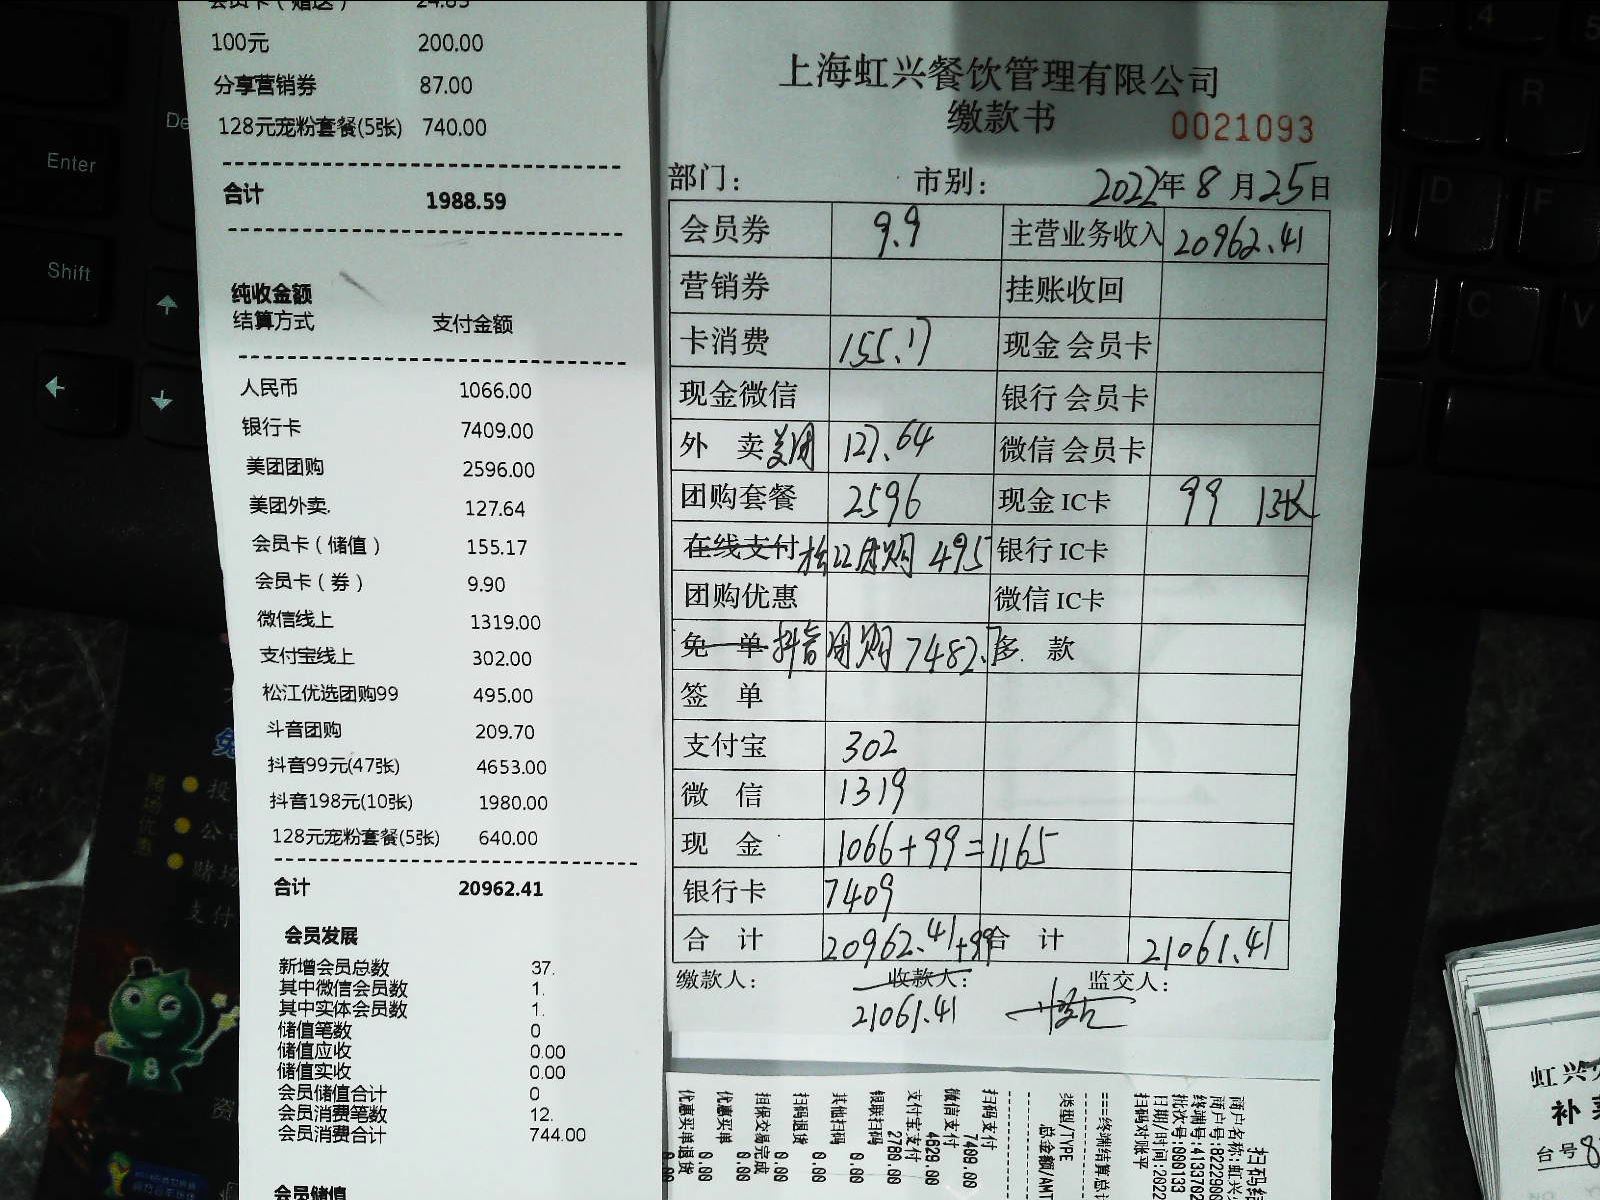 会员卡（赠送） 24.85
100元 200.00
分享营销券 87.00
128元宠粉套餐(5张) 740.00
合计 1988.59
纯收金额
结算方式 支付金额
人民币 1066.00
银行卡 7409.00
美团团购 2596.00
美团外卖. 127.64
会员卡（储值） 155.17
会员卡（券） 9.90
微信线上 1319.00
支付宝线上 302.00
松江优选团购99 495.00
斗音团购 209.70
抖音99元(47张) 4653.00
抖音198元(10张) 1980.00
128元宠粉套餐(5张) 640.00
合计 20962.41
会员发展
新增会员总数 37.
其中微信会员数 1.
其中实体会员数 1.
储值笔数 0
储值应收 0.00
储值实收 0.00
会员储值合计 0
会员消费笔数 12.
会员消费合计 744.00
会员储值
上海虹兴餐饮管理有限公司
缴款书 0021093
部门： 市别： 2022年8月25日
会员券 9.9 主营业务收入 20962.41
营销券 挂账收回
卡消费 155.17 现金 会员卡
现金微信 银行 会员卡
外 卖 美团 127.64 微信 会员卡
团购套餐 2596 现金 IC卡 99 1张
在线支付 松江团购 495 银行 IC卡
团购优惠 微信 IC卡
免 单 抖音团购 7482.7 多 款
签 单
支付宝 302
微 信 1319
现 金 1066+99=1165
银行卡 7409
合 计 20962.41+99 合 计 21061.41
缴款人： 收款人： 监交人：
21061.41
商户名称:虹兴
日期/时间:2022
扫码对账平
===终端结算总计
类型/TYPE 总金额/AMT
扫码支付 7409.00
微信支付 4629.00
支付宝支付 2780.00
银联扫码 0.00
其他扫码 0.00
扫码退货 0.00
担保交易完成 0.00
优惠买单 0.00
优惠买单退货 0.00
虹兴
补
台号8
Enter
Shift
De
E
R
D
F
C
V